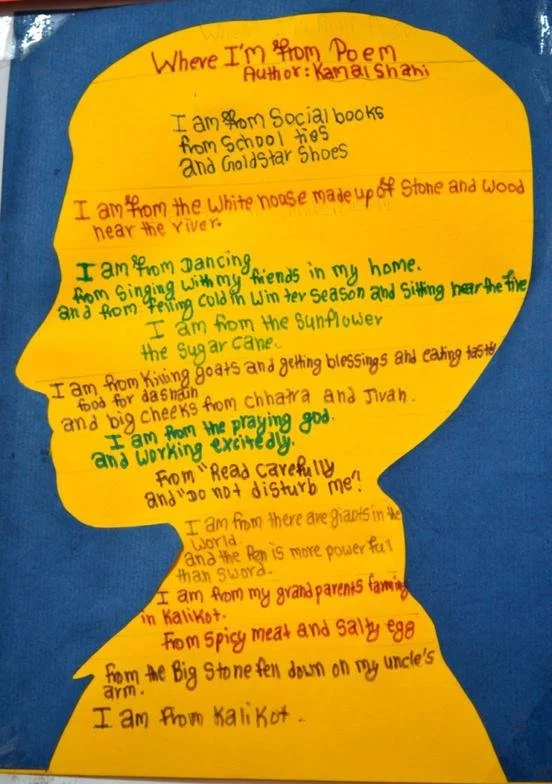 Where I'm from Poem
Author: Kamal Shahi
I am from Social books
from School ties
and GoldStar Shoes
I am from the White house made up of Stone and Wood
near the river.
I am from Dancing
from Singing with my friends in my home.
and from felling cold in Winter Season and Sitting near the fire
I am from the Sunflower
the Sugar cane.
I am from Killing goats and getting blessings and eating tasty
food for dashain
and big cheeks from chhatra and Jivan.
I am from the praying god.
and working excitedly.
From "Read Carefully
and "Do not disturb me"!
I am from there are giants in the
World.
and the Pen is more powerful
than Sword.
I am from my grandparents farming
in Kalikot.
From Spicy meat and Salty egg
From the Big Stone fell down on my uncle's
arm.
I am from Kalikot.